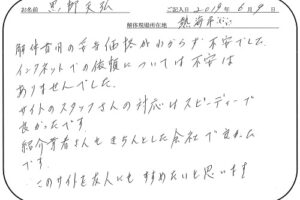 お名前 黒部天弘 ご記入日 2019年6月9日
解体現場所在地 熱海市
解体費用の妥当価格がわからず不安でした。
インターネットでの依頼については不安は
ありませんでした。
サイトのスタッフさんの対応はスピーディーで
良かったです。
紹介業者さんもきちんとした会社で良かった
です。
このサイトを友人にもすすめたいと思います